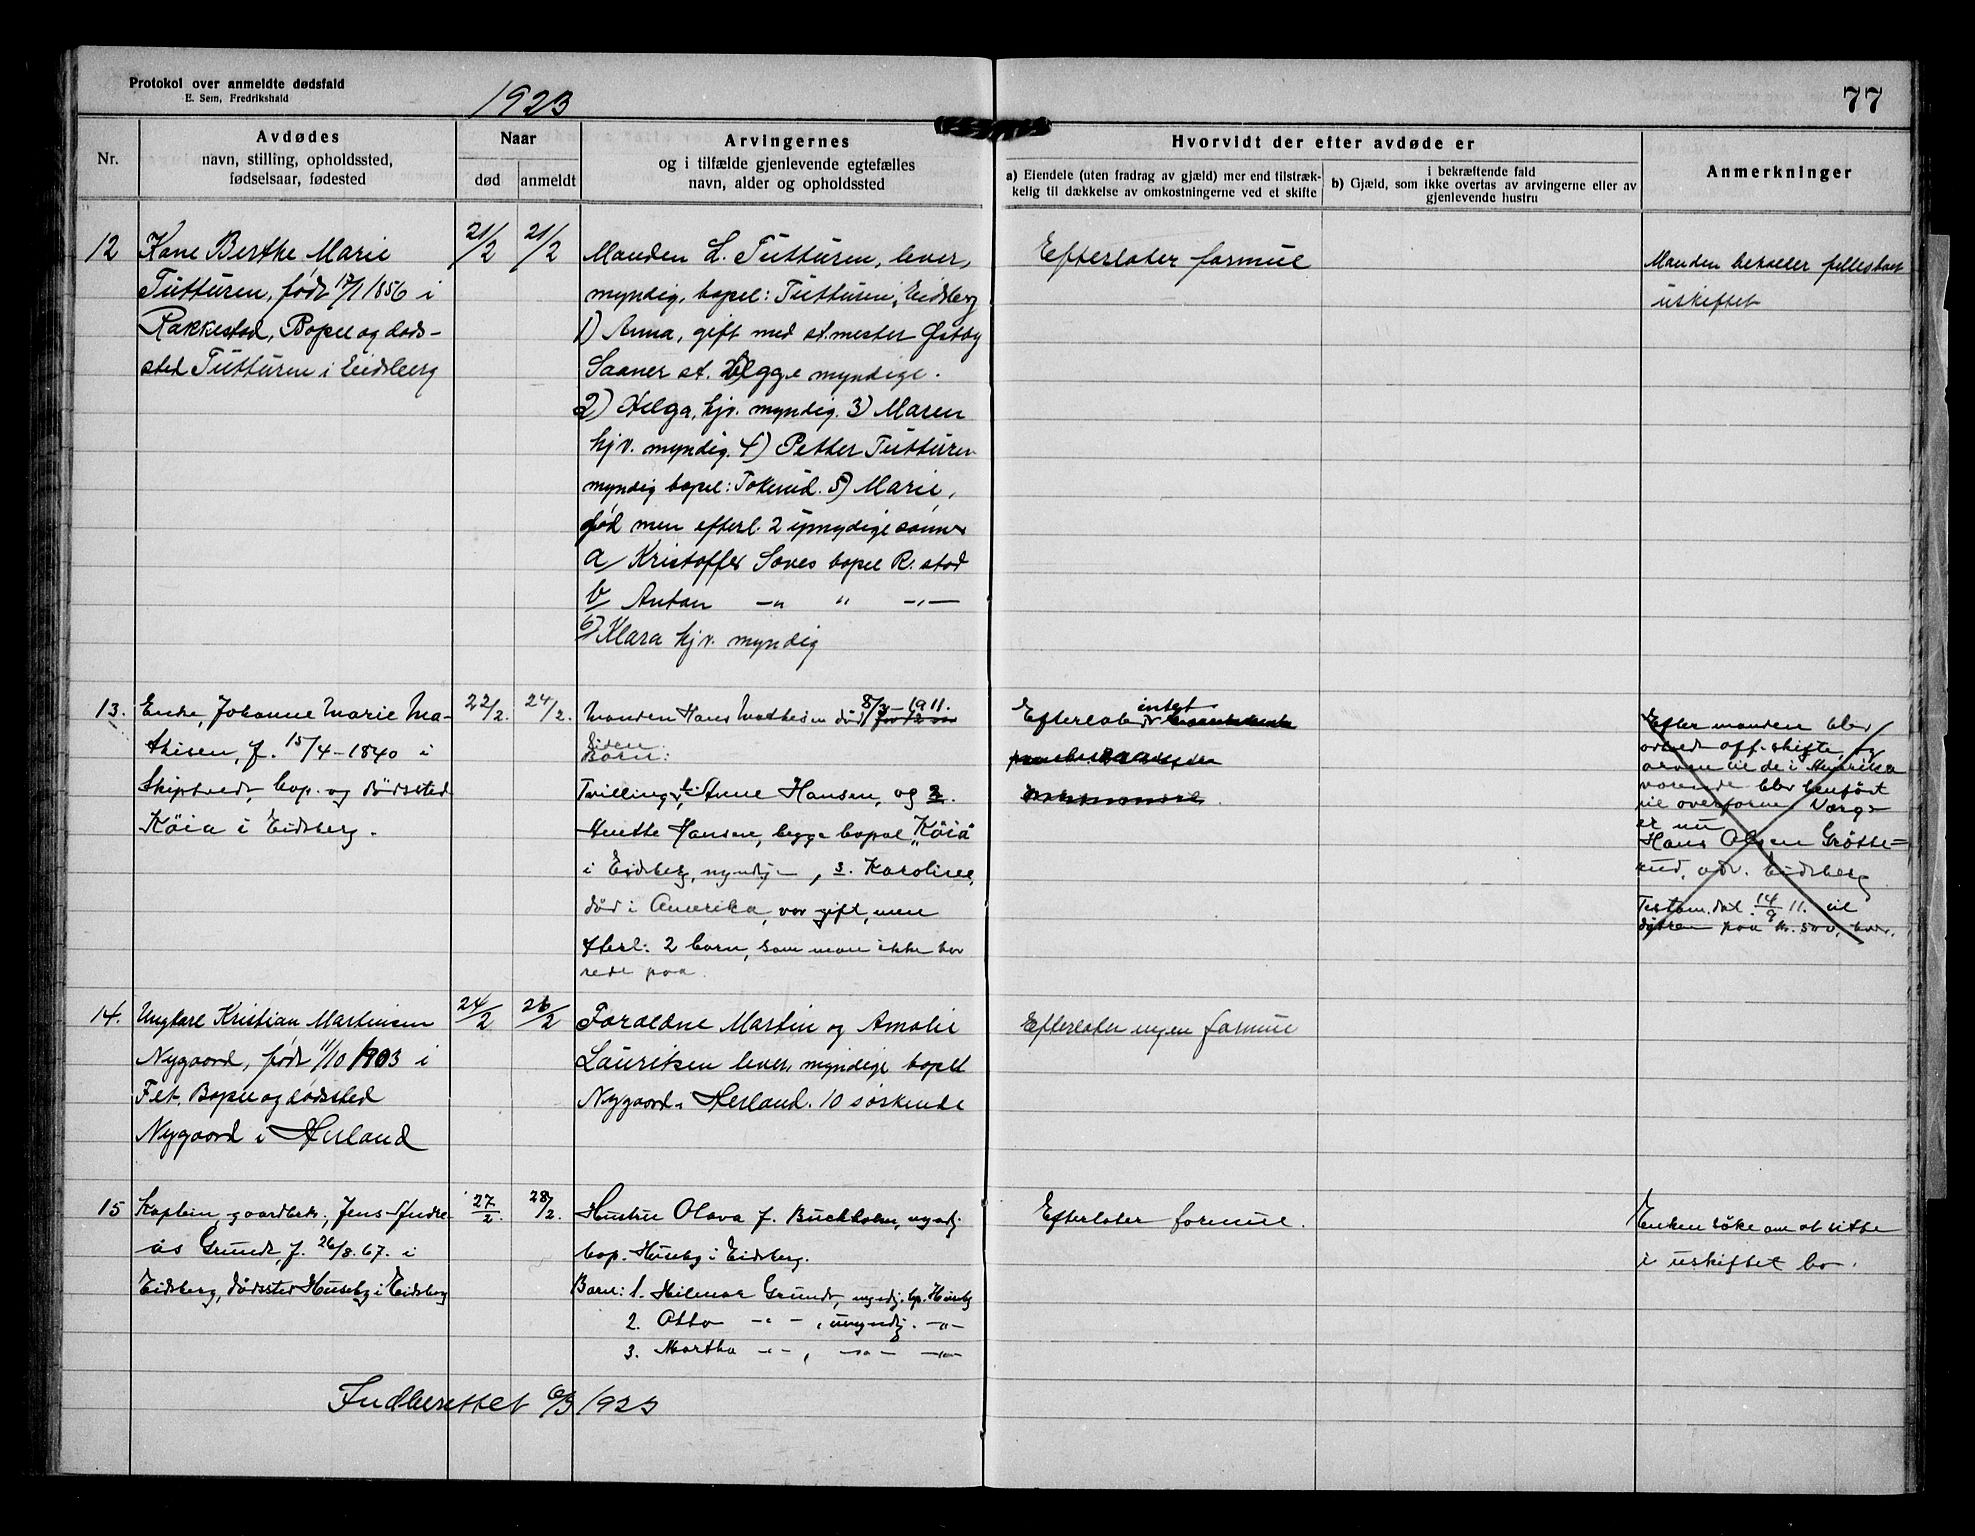 Protokol over anmeldte dødsfald
E. Sem, Fredrikshald
1923
77
Nr.
Avdødes
navn, stilling, opholdssted,
fødselsaar, fødested
Naar
død
anmeldt
Arvingernes
og i tilfælde gjenlevende egtefælles
navn, alder og opholdssted
Hvorvidt der efter avdøde er
a) Eiendele (uten fradrag av gjæld) mer end tilstræk-
kelig til dækkelse av omkostningerne ved et skifte
i bekræftende fald
b) Gjæld, som ikke overtas av arvingerne eller av
gjenlevende hustru
Anmerkninger
12
Kone Berthe Marie
Tutturen, født 17/1 1856 i
Rakkestad, Bopel og døds-
sted Tutturen i Eidsberg
21/2
21/2
Manden L. Tutturen, lever,
myndig, bopel: Tutturen, Eidsberg
1) Anna, gift med st.mester Østby
Saaner st. Begge myndige.
2) Helga, hjv. myndig. 3) Maren
hjv. myndig. 4) Petter Tutturen
myndig bopel: Tokerud. 5) Marie,
død men efterl. 2 umyndige sønner
a/ Kristoffer Soves bopel R.stad
b/ Anton -"- " -"-
6) Klara hjv. myndig
Efterlater formue
Manden beholder fellesboet
uskiftet
13.
Enke, Johanne Marie Ma-
thisen, f. 15/4-1840 i
Skiptvedt, bop. og dødssted
Köia i Eidsberg.
22/2.
24/2.
Manden Hans Mathisen død 8/3-1911.
siden
Børn:
Tvillinger, 1. Anne Hansen, og 2.
Anette Hansen, begge bopæl "Köia"
i Eidsberg, myndige, 3. Karoline,
død i Amerika, var gift, men
efterl: 2 barn, som man ikke har
rede paa.
Efterlater intet
Efter manden blev
avholdt off. skifte, og
arven til de i Amerika
værende blev henført
til overform. Værge
er nu
Hans Olsen Grötte-
rud, adr. Eidsberg
Testam. dat. 14/9 11. til
døtren paa kr. 500, hver.
14.
Ungkarl Kristian Martinsen
Nygaard, født 11/10 1903 i
Fet. Bopel og dødssted
Nygaard i Herland
24/2
26/2
Foraeldne Martin og Amalie
Lauritsen lever, myndige bopel
Nygaard i Herland. 10 søskende
Efterlater ingen formue
15
Kaptein, gaardbr., Jens Andre-
as Grundt, f. 26/8.67. i
Eidsberg, dødssted Huseby i Eidsberg
27/2.
28/2.
Hustru Olava f. Buckholm, myndj.
bop. Huseby i Eidsberg.
Barn: 1. Hilmar Grundt, myndj. bp. Huseby
2. Otto -"-, umyndj. -"-
3. Martha -"-, -"- -"-
Efterlater formue.
Enken söke om at sitte
i uskiftet bo.
Indberettet 6/3 1923